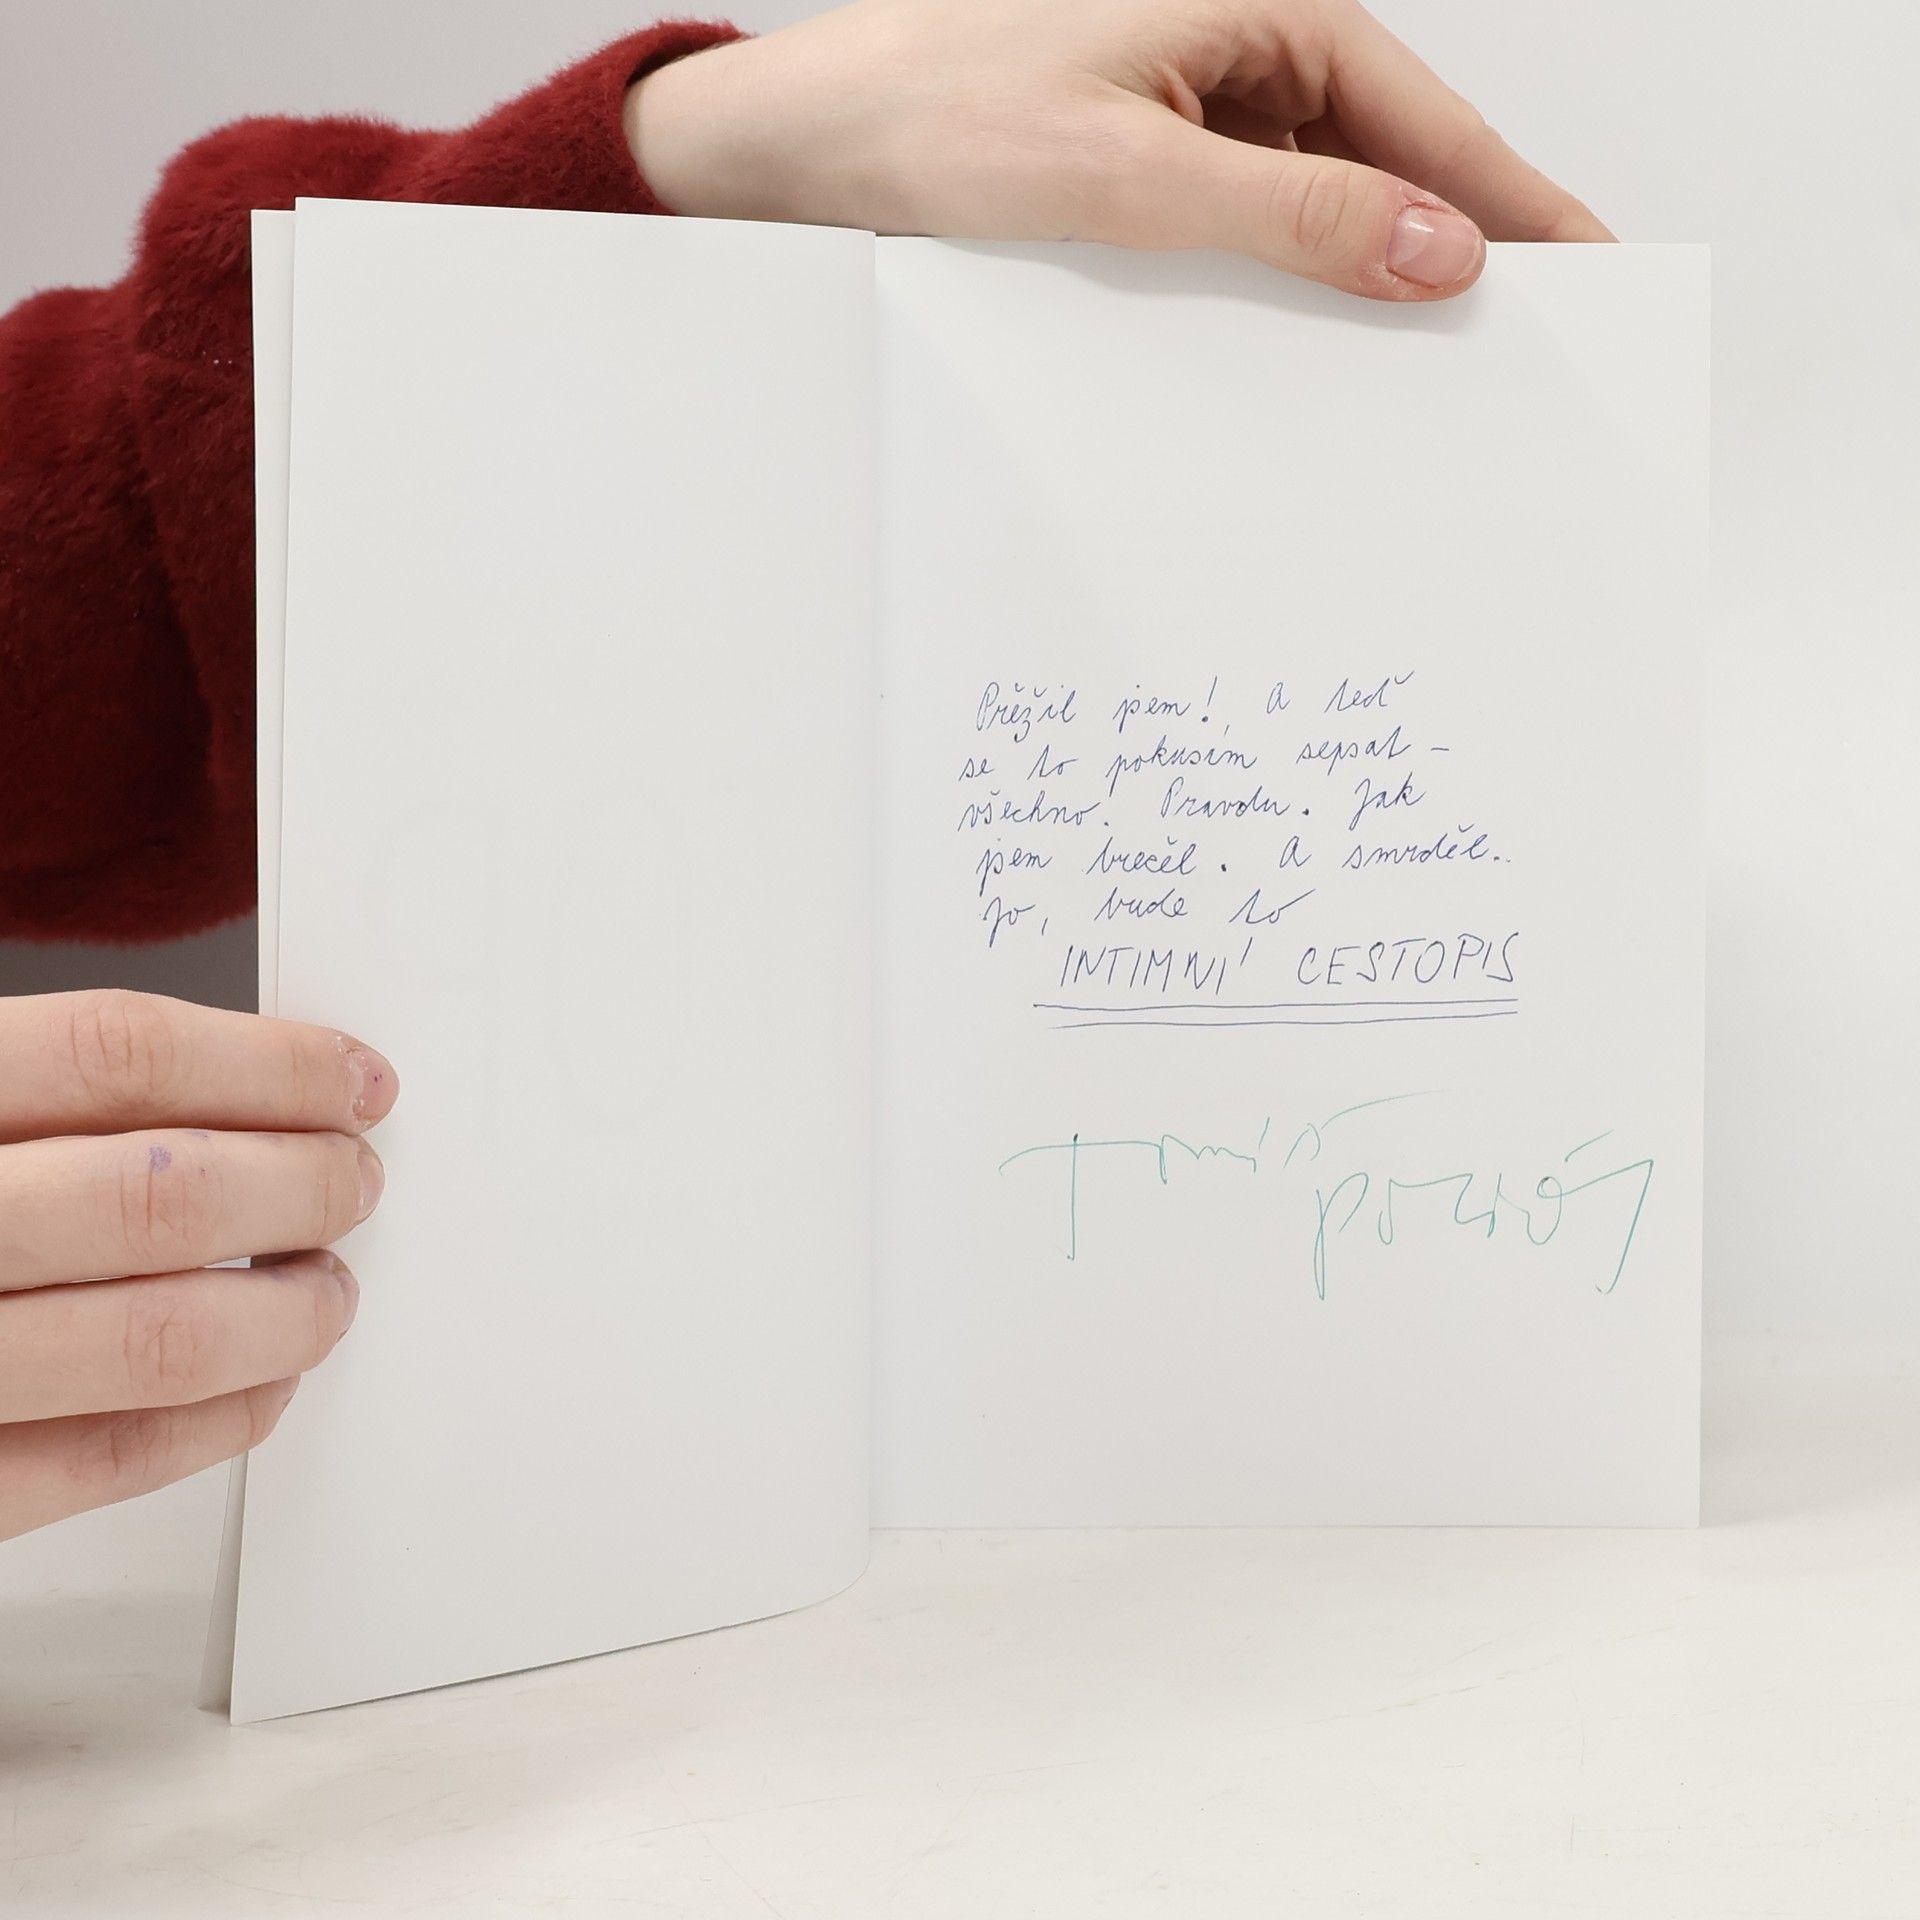 Přežil jem! A teď
se to pokusím sepsat –
všechno. Pravdu. Jak
jsem brečel. A smrděl..
Jo, bude to
INTIMNÍ CESTOPIS
Tomáš